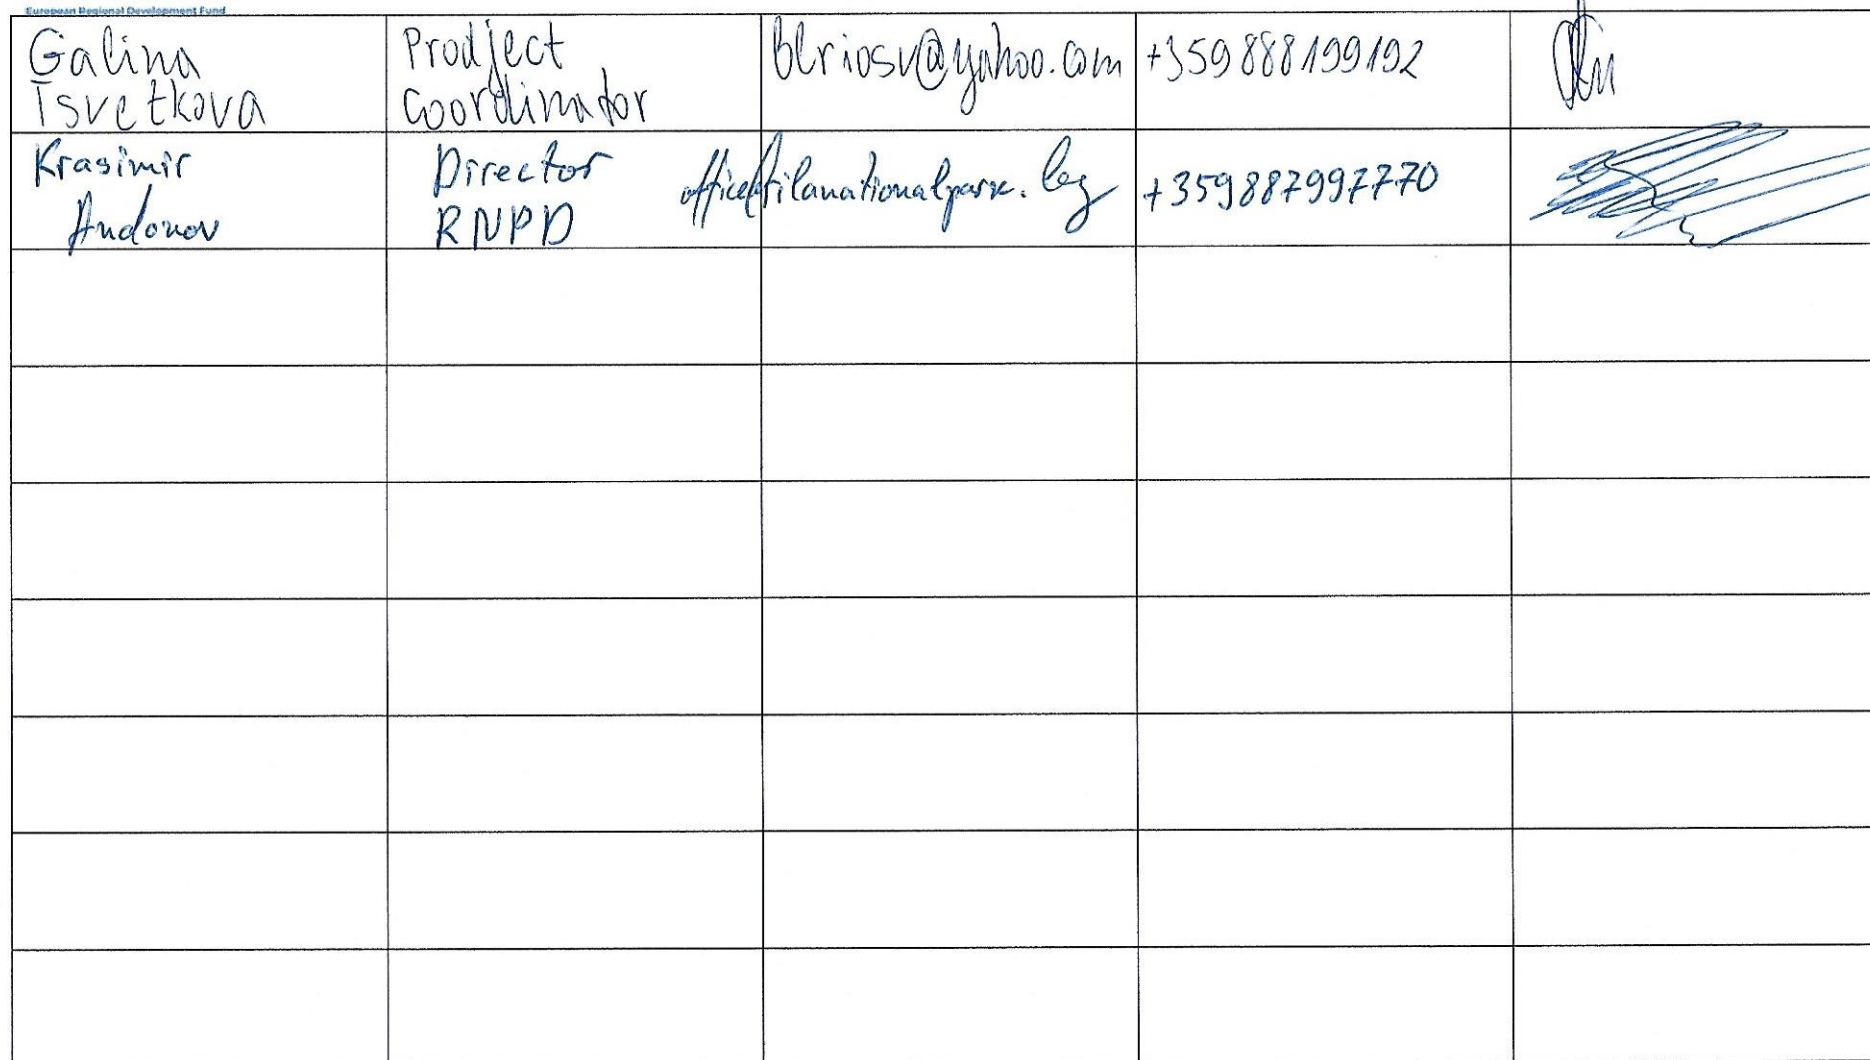 European Regional Development Fund
Galina
Tsvetkova
Prodject
coordinator
blriosv@yahoo.com
+359 888199192
Krasimir
Andonov
Director
RNPD
+359887997770